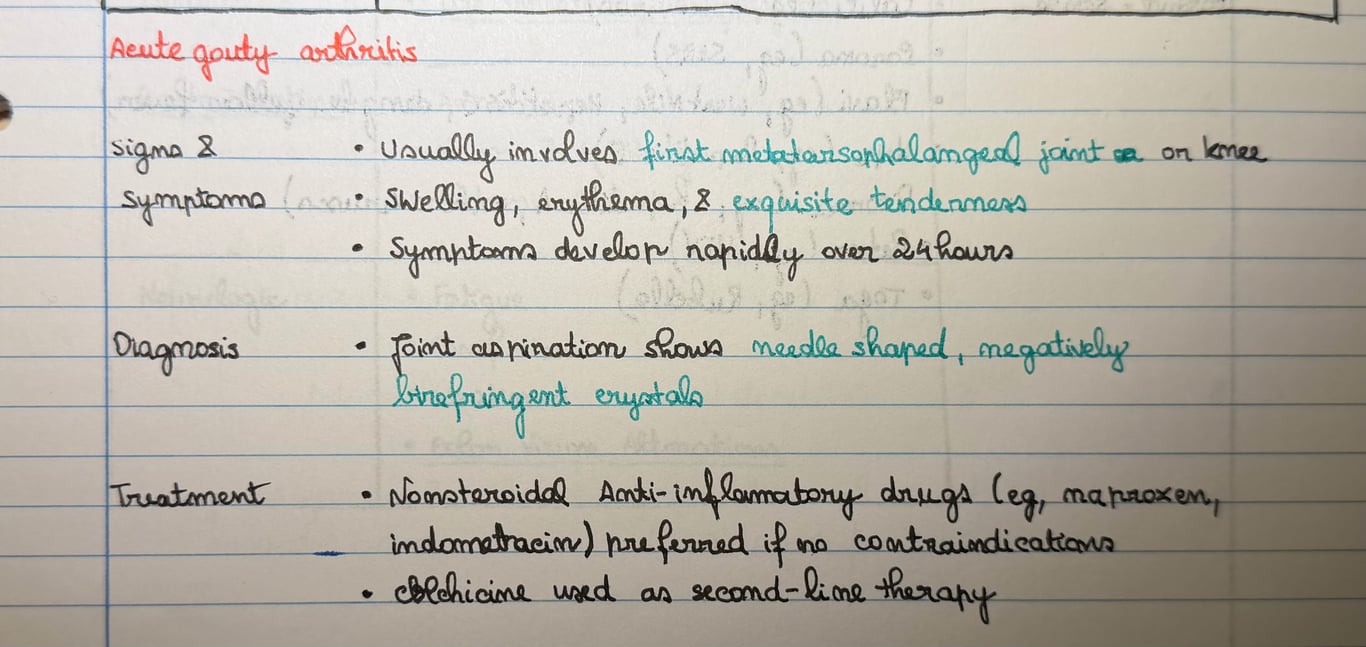 Acute gouty arthritis
signs & • Usually involves first metatarsophalangeal joint or knee
symptoms • Swelling, erythema, & exquisite tenderness
• Symptoms develop rapidly over 24 hours
Diagnosis • Joint aspiration shows needle shaped, negatively
birefringent crystals
Treatment • Nonsteroidal Anti-inflammatory drugs (eg, naproxen,
indomethacin) preferred if no contraindications
• colchicine used as second-line therapy